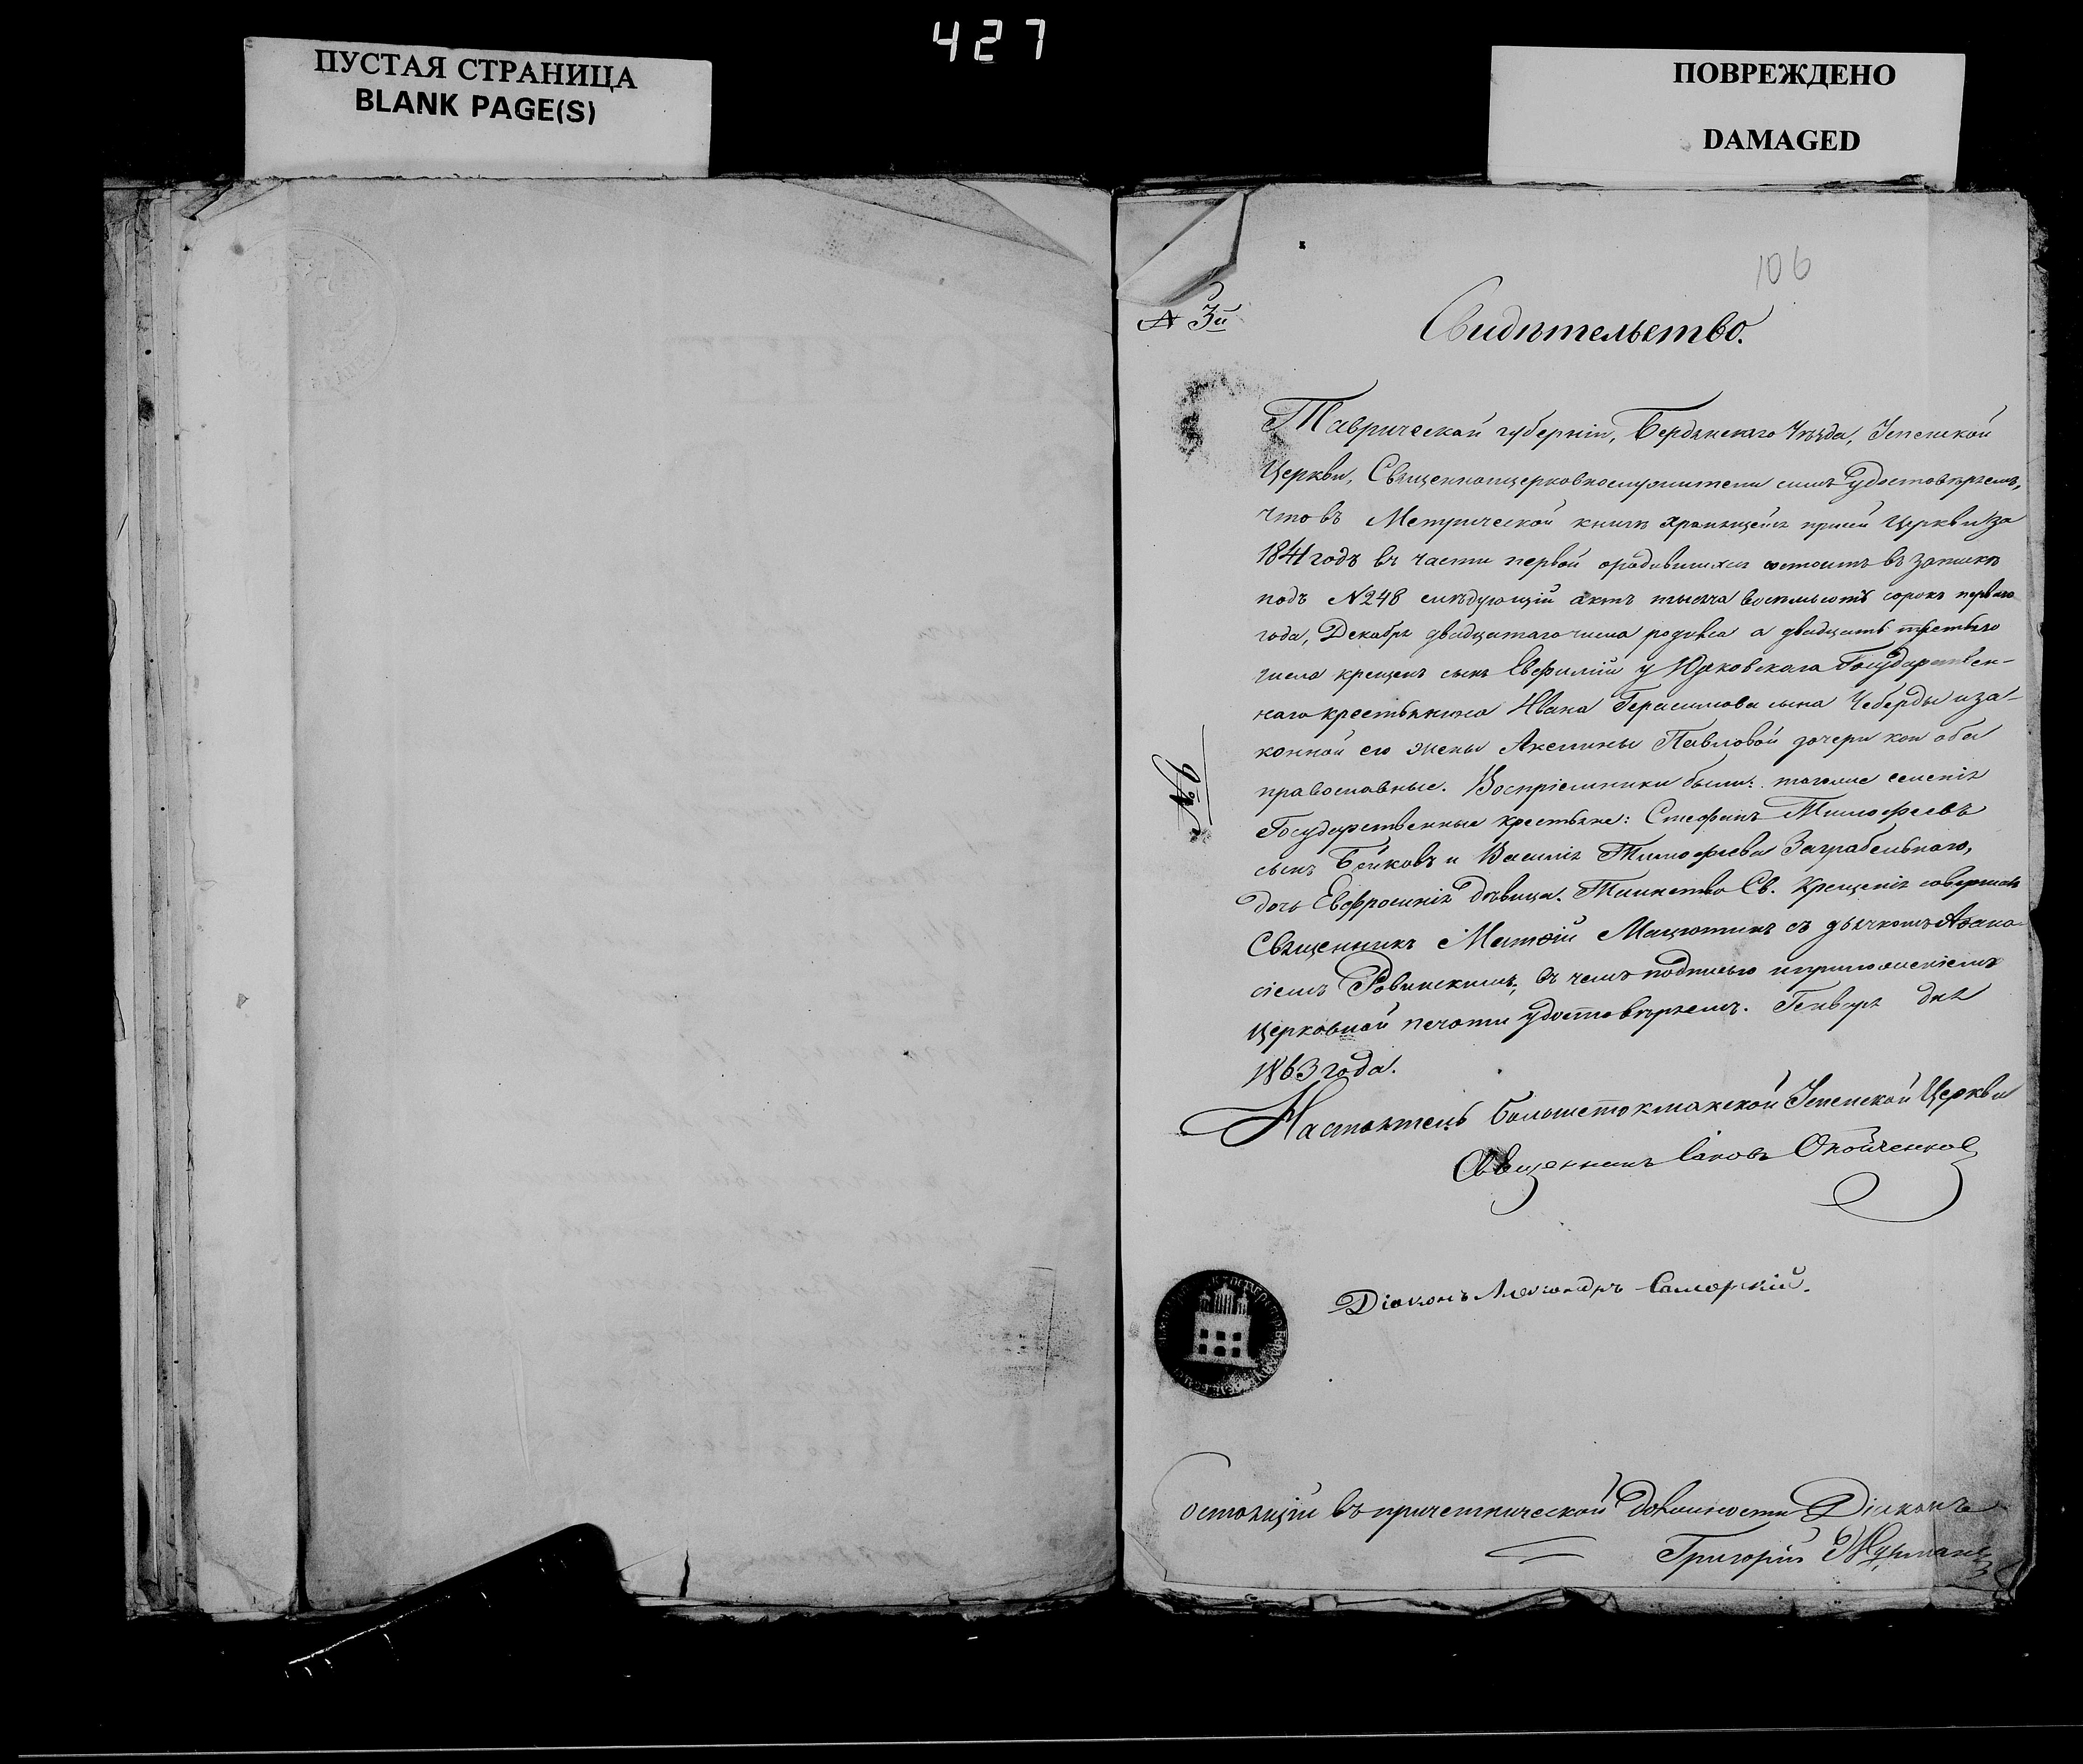 427
ПУСТАЯ СТРАНИЦА
BLANK PAGE(S)
ПОВРЕЖДЕНО
DAMAGED
106
№ 3й
Свидѣтельство.
Таврической губерніи, Бердянскаго Уѣзда, Успенской
Церкви, Священноцерковнослужители симъ удостовѣряемъ,
что въ Метрической книгѣ хранящейся при сей Церкви за
1841 годъ въ части первой о родившихся состоитъ въ запискѣ
подъ №248 слѣдующій актъ тысяча восемьсотъ сорокъ перваго
года, Декабря двадцатаго числа родился а двадцать третьяго
числа крещенъ сынъ Евфимій у Государствен-
наго крестьянина Ивана Герасимова сына Чеберды и за-
конной его жены Акилины Павловой дочери кои оба
православные. Воспріемники были: тогоже селенія
Государственные крестьяне: Стефанъ Тимофеевъ
сынъ Бойковъ и Василія Тимофеева Заграбельнаго,
дочь Евфросинія дѣвица. Таинство Св. Крещенія совершалъ
Священникъ Матѳій Мацютинъ съ дьячкомъ Аѳана-
сіемъ Ровинскимъ; въ чемъ подписью и приложеніемъ
Церковной печати удостовѣряемъ. Генваря дня
1863 года.
№6
Настоятель Большетокмакской Успенской Церкви
Священникъ Іаковъ Опойченков
Діаконъ Александръ Саморскій.
Состоящій въ причетнической должности Діаконъ
Григорій